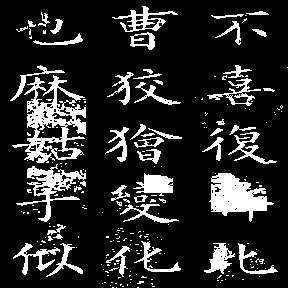 不喜復此
曹狡獪變化
也麻姑手似